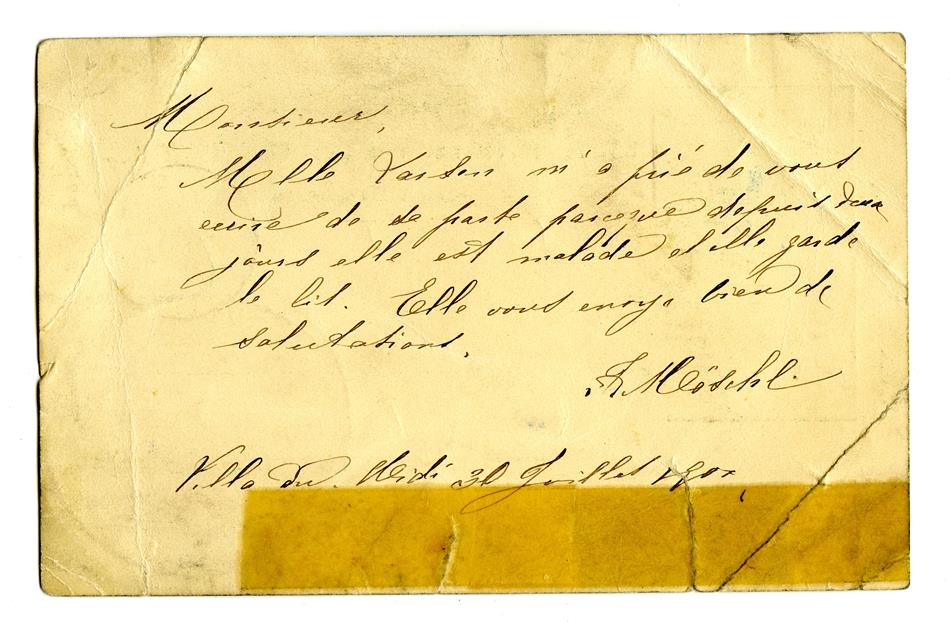 Monsieur,
Melle Larsen m'a prié de vous
ecrire de sa parte parceque depuis deux
jours elle est malade et elle garde
le lit. Elle vous envoye bien de
salutations.
Möschl.
Villa du Midi 30 Juillet